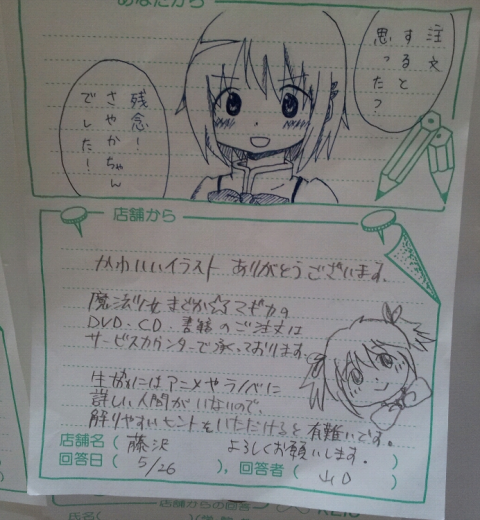 あなたから
注文
すると
思ったっ
残念!
さやかちゃん
でした!
店舗から
かわいいイラスト ありがとうございます。
魔法少女まどか☆マギカの
DVD・CD・書籍のご注文は
サービスカウンターで承っております。
生協にはアニメやラノベに
詳しい人間がいないので、
解りやすいヒントをいただけると有難いです。
店舗名( 藤沢 よろしくお願いします。 )
回答日( 5/26 ), 回答者( 山口 )
店舗からの回答
氏名(